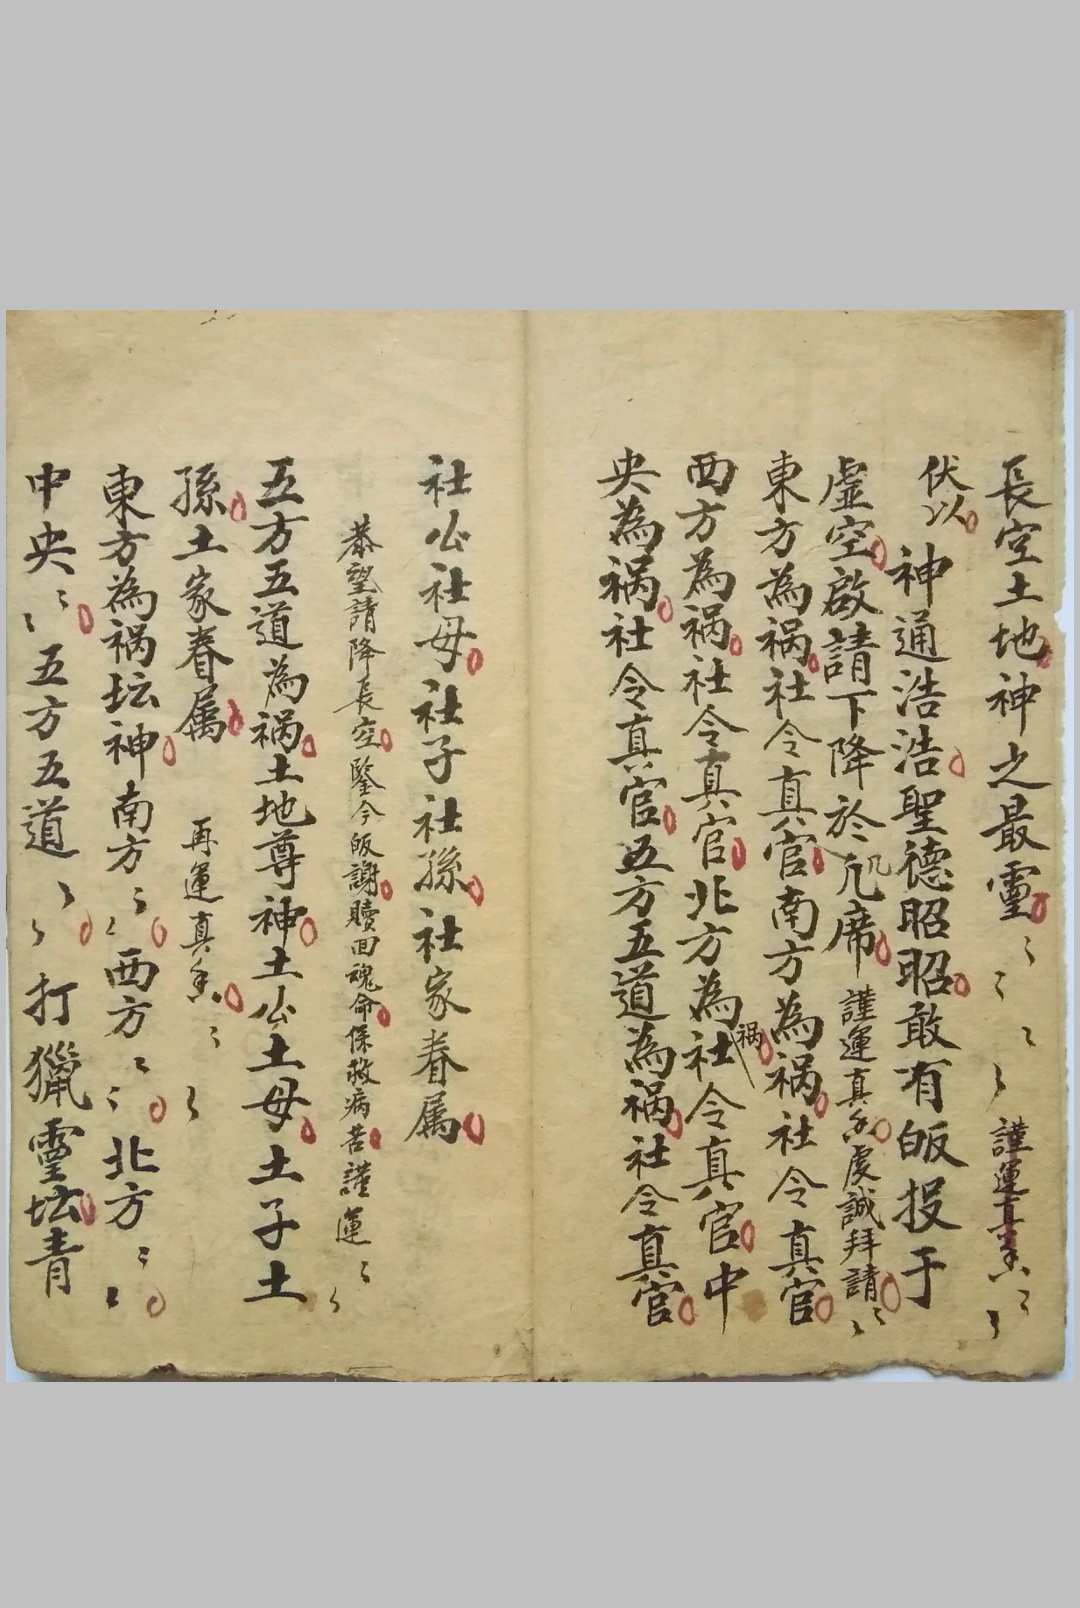 長空土地神之最靈〻〻〻〻謹運真香〻〻
伏以神通浩浩聖德昭昭敢有皈投于
虚空啟請下降於几席謹運真香虔誠拜請〻〻
東方為祸社令真官南方為祸社令真官
西方為祸社令真官北方為祸社令真官中
央為祸社令真官五方五道為祸社令真官
社公社母社子社孫社家眷属
恭望請降長空鑒今皈謝贖回魂命保救病苦謹運〻〻
五方五道為祸土地尊神土公土母土子土
孫土家眷属再運真香〻〻
東方為祸坛神南方〻〻西方〻〻北方〻〻
中央〻〻五方五道〻〻打獵靈坛青